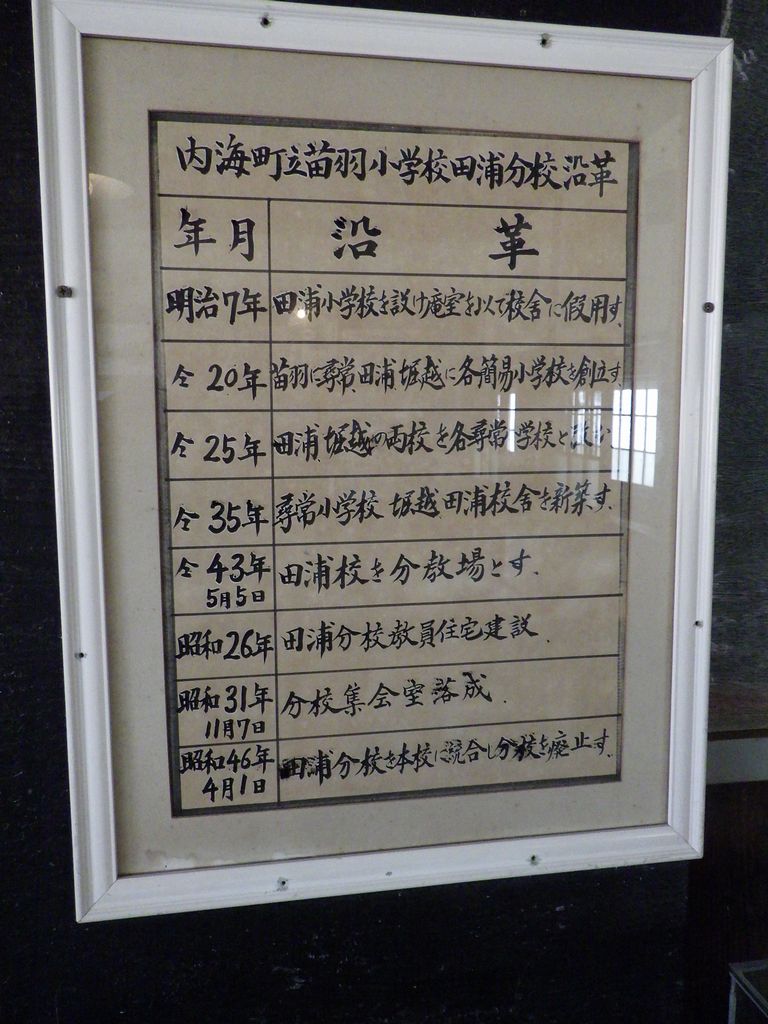 内海町立苗羽小学校田浦分校沿革
年月 沿革
明治7年 田浦小学校を設け庵室を以て校舎に假用す.
仝20年 苗羽に尋常田浦堀越に各簡易小学校を創立す.
仝25年 田浦堀越の両校を各尋常小学校と
仝35年 尋常小学校堀越田浦校舎を新築す.
仝43年 田浦校を分教場とす.
5月5日
昭和26年 田浦分校教員住宅建設.
昭和31年 分校集会室落成.
11月7日
昭和46年 田浦分校を本校に統合し分校を廃止す.
4月1日